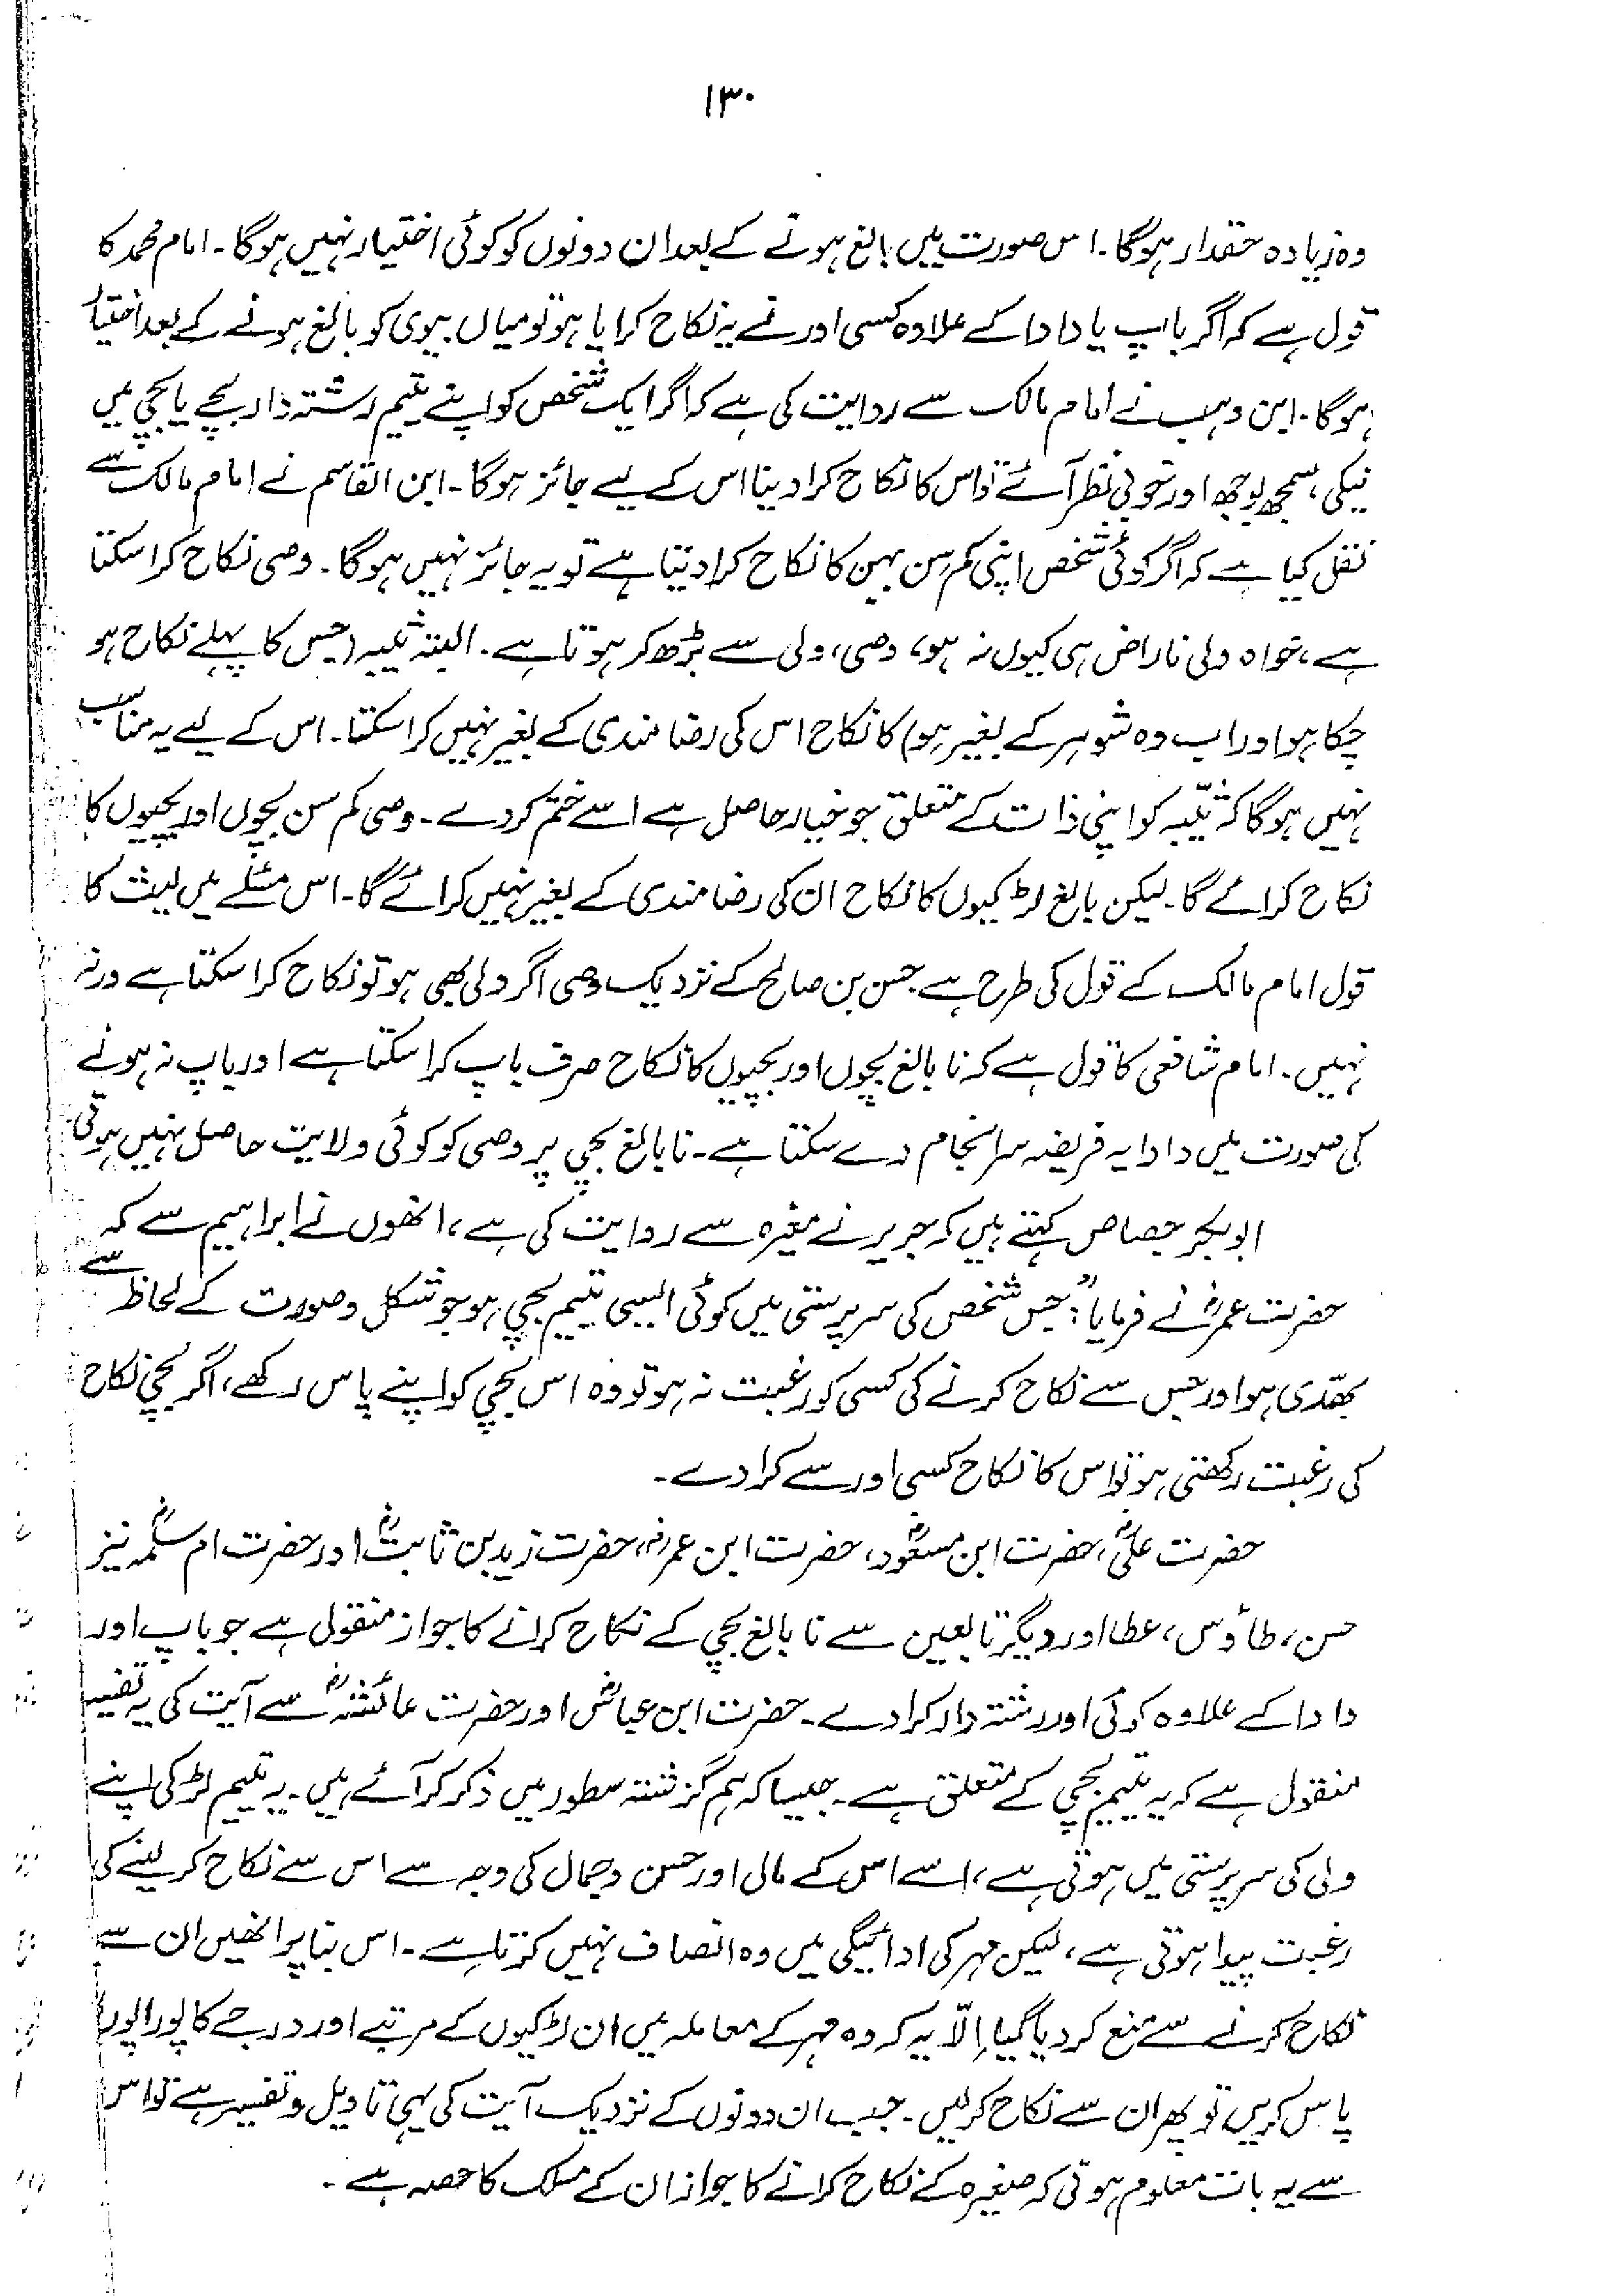 ۱۳۰
وہ زیادہ حقدار ہوگا۔ اس صورت میں بالغ ہونے کے بعد ان دونوں کو کوئی اختیار نہیں ہوگا۔ امام محمد کا
قول ہے کہ اگر باپ یا دادا کے علاوہ کسی اور نے یہ نکاح کرایا ہو تو میاں بیوی کو بالغ ہونے کے بعد اختیار
ہوگا۔ ابن وہب نے امام مالک سے روایت کی ہے کہ اگر ایک شخص کو اپنے یتیم رشتہ دار بچے یا بچی میں
نیکی، سمجھ بوجھ اور خوبی نظر آئے تو اس کا نکاح کرا دینا اس کے لیے جائز ہوگا۔ ابن القاسم نے امام مالک سے
نقل کیا ہے کہ اگر کوئی شخص اپنی کم سن بہن کا نکاح کرا دیتا ہے تو یہ جائز نہیں ہوگا۔ وصی نکاح کرا سکتا
ہے، خواہ ولی ناراض ہی کیوں نہ ہو، وصی، ولی سے بڑھ کر ہوتا ہے۔ البتہ ثیبہ (جس کا پہلے نکاح ہو
چکا ہو اور اب وہ شوہر کے بغیر ہو) کا نکاح اس کی رضامندی کے بغیر نہیں کرا سکتا۔ اس کے لیے یہ مناسب
نہیں ہوگا کہ ثیّبہ کو اپنی ذات کے متعلق جو خیار حاصل ہے اسے ختم کر دے۔ وصی کم سن بچوں اور بچیوں کا
نکاح کرائے گا۔ لیکن بالغ لڑکیوں کا نکاح ان کی رضامندی کے بغیر نہیں کرائے گا۔ اس مسئلے میں لیث کا
قول امام مالک کے قول کی طرح ہے۔ حسن بن صالح کے نزدیک وصی اگر ولی بھی ہو تو نکاح کرا سکتا ہے ورنہ
نہیں۔ امام شافعی کا قول ہے کہ نابالغ بچوں اور بچیوں کا نکاح صرف باپ کرا سکتا ہے اور باپ نہ ہونے
کی صورت میں دادا یہ فریضہ سرانجام دے سکتا ہے۔ نابالغ بچی پر وصی کو کوئی ولایت حاصل نہیں ہوتی۔
ابوبکر جصاص کہتے ہیں کہ جریر نے مغیرہ سے روایت کی ہے، انھوں نے ابراہیم سے کہ
حضرت عمرؓ نے فرمایا: "جس شخص کی سرپرستی میں کوئی ایسی یتیم بچی ہو جو شکل و صورت کے لحاظ سے
بھدّی ہو اور جس سے نکاح کرنے کی کسی کو رغبت نہ ہو تو وہ اس بچی کو اپنے پاس رکھے، اگر بچی نکاح
کی رغبت رکھتی ہو تو اس کا نکاح کسی اور سے کرا دے۔
حضرت علیؓ، حضرت ابن مسعودؓ، حضرت ابن عمرؓ، حضرت زید بن ثابتؓ اور حضرت ام سلمہؓ نیز
حسن، طاؤس، عطا اور دیگر تابعین سے نابالغ بچی کے نکاح کرانے کا جواز منقول ہے جو باپ اور
دادا کے علاوہ کوئی اور رشتہ دار کرا دے۔ حضرت ابن عباسؓ اور حضرت عائشہؓ سے آیت کی یہ تفسیر
منقول ہے کہ یہ یتیم بچی کے متعلق ہے۔ جیسا کہ ہم گزشتہ سطور میں ذکر کر آئے ہیں۔ یہ یتیم لڑکی اپنے
ولی کی سرپرستی میں ہوتی ہے، اسے اس کے مال اور حسن و جمال کی وجہ سے اس سے نکاح کر لینے کی
رغبت پیدا ہوتی ہے، لیکن مہر کی ادائیگی میں وہ انصاف نہیں کرتا ہے۔ اس بنا پر انھیں ان سے
نکاح کرنے سے منع کر دیا گیا اِلّا یہ کہ وہ مہر کے معاملہ میں ان لڑکیوں کے مرتبے اور درجے کا پورا پورا
پاس کریں تو پھر ان سے نکاح کر لیں۔ جب ان دونوں کے نزدیک آیت کی یہی تاویل و تفسیر ہے تو اس
سے یہ بات معلوم ہوئی کہ صغیرہ کے نکاح کرانے کا جواز ان کے مسلک کا حصہ ہے۔